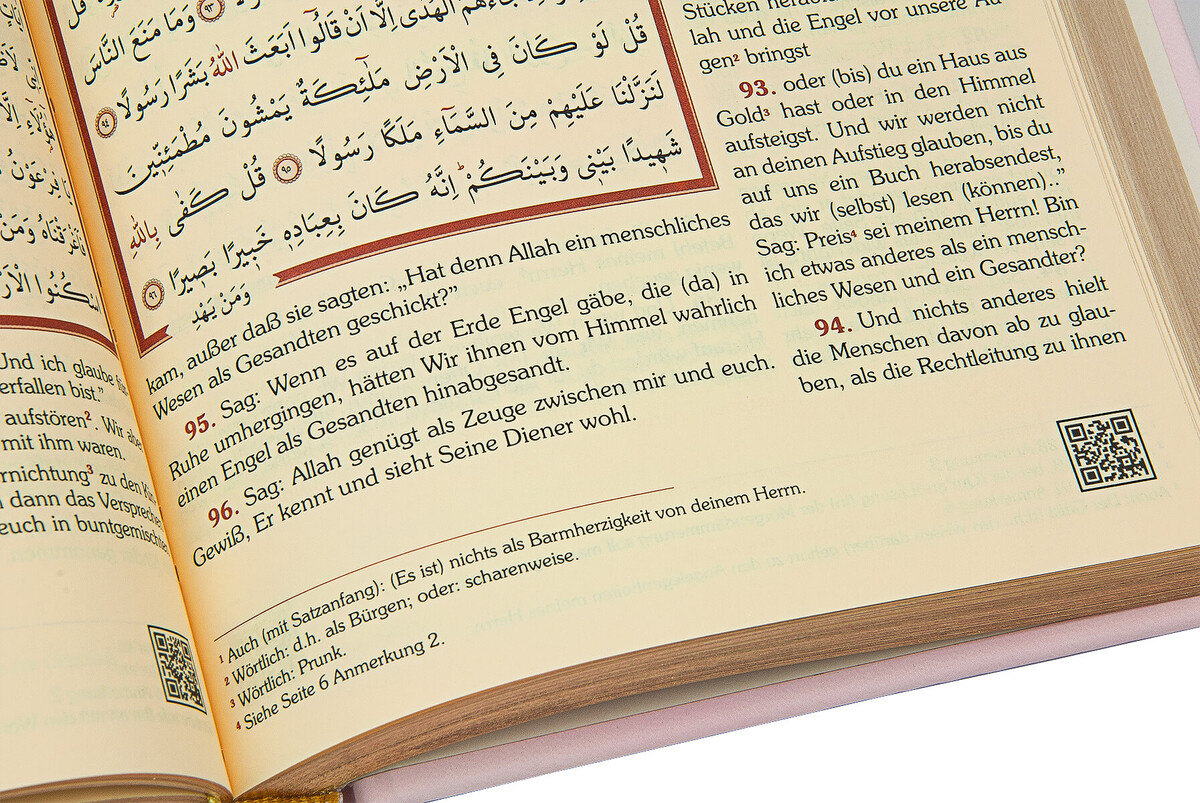 وَمَا مَنَعَ النَّاسَ
جَاءَهُمُ الْهُدٰٓى اِلَّٓا اَنْ قَالُٓوا اَبَعَثَ اللّٰهُ بَشَرًا رَسُولًا ﴿٩٤﴾
قُلْ لَوْ كَانَ فِى الْاَرْضِ مَلٰٓئِكَةٌ يَمْشُونَ مُطْمَئِنّٖينَ
لَنَزَّلْنَا عَلَيْهِمْ مِنَ السَّمَٓاءِ مَلَكًا رَسُولًا ﴿٩٥﴾ قُلْ كَفٰى بِاللّٰهِ
شَهٖيدًا بَيْنٖى وَبَيْنَكُمْ اِنَّهُ كَانَ بِعِبَادِهٖ خَبٖيرًا بَصٖيرًا ﴿٩٦﴾
وَمَنْ يَهْدِ
Stücken
lah und die Engel vor unsere Au-
gen² bringst
93. oder (bis) du ein Haus aus
Gold³ hast oder in den Himmel
aufsteigst. Und wir werden nicht
an deinen Aufstieg glauben, bis du
auf uns ein Buch herabsendest,
das wir (selbst) lesen (können)..”
Sag: Preis⁴ sei meinem Herrn! Bin
ich etwas anderes als ein mensch-
liches Wesen und ein Gesandter?
94. Und nichts anderes hielt
die Menschen davon ab zu glau-
ben, als die Rechtleitung zu ihnen
kam, außer daß sie sagten: „Hat denn Allah ein menschliches
Wesen als Gesandten geschickt?”
95. Sag: Wenn es auf der Erde Engel gäbe, die (da) in
Ruhe umhergingen, hätten Wir ihnen vom Himmel wahrlich
einen Engel als Gesandten hinabgesandt.
96. Sag: Allah genügt als Zeuge zwischen mir und euch.
Gewiß, Er kennt und sieht Seine Diener wohl.
¹ Auch (mit Satzanfang): (Es ist) nichts als Barmherzigkeit von deinem Herrn.
² Wörtlich: d.h. als Bürgen; oder: scharenweise.
³ Wörtlich: Prunk.
⁴ Siehe Seite 6 Anmerkung 2.
Und ich glaube
erfallen bist.”
aufstören². Wir
mit ihm waren.
rnichtung³ zu den
dann das
euch in